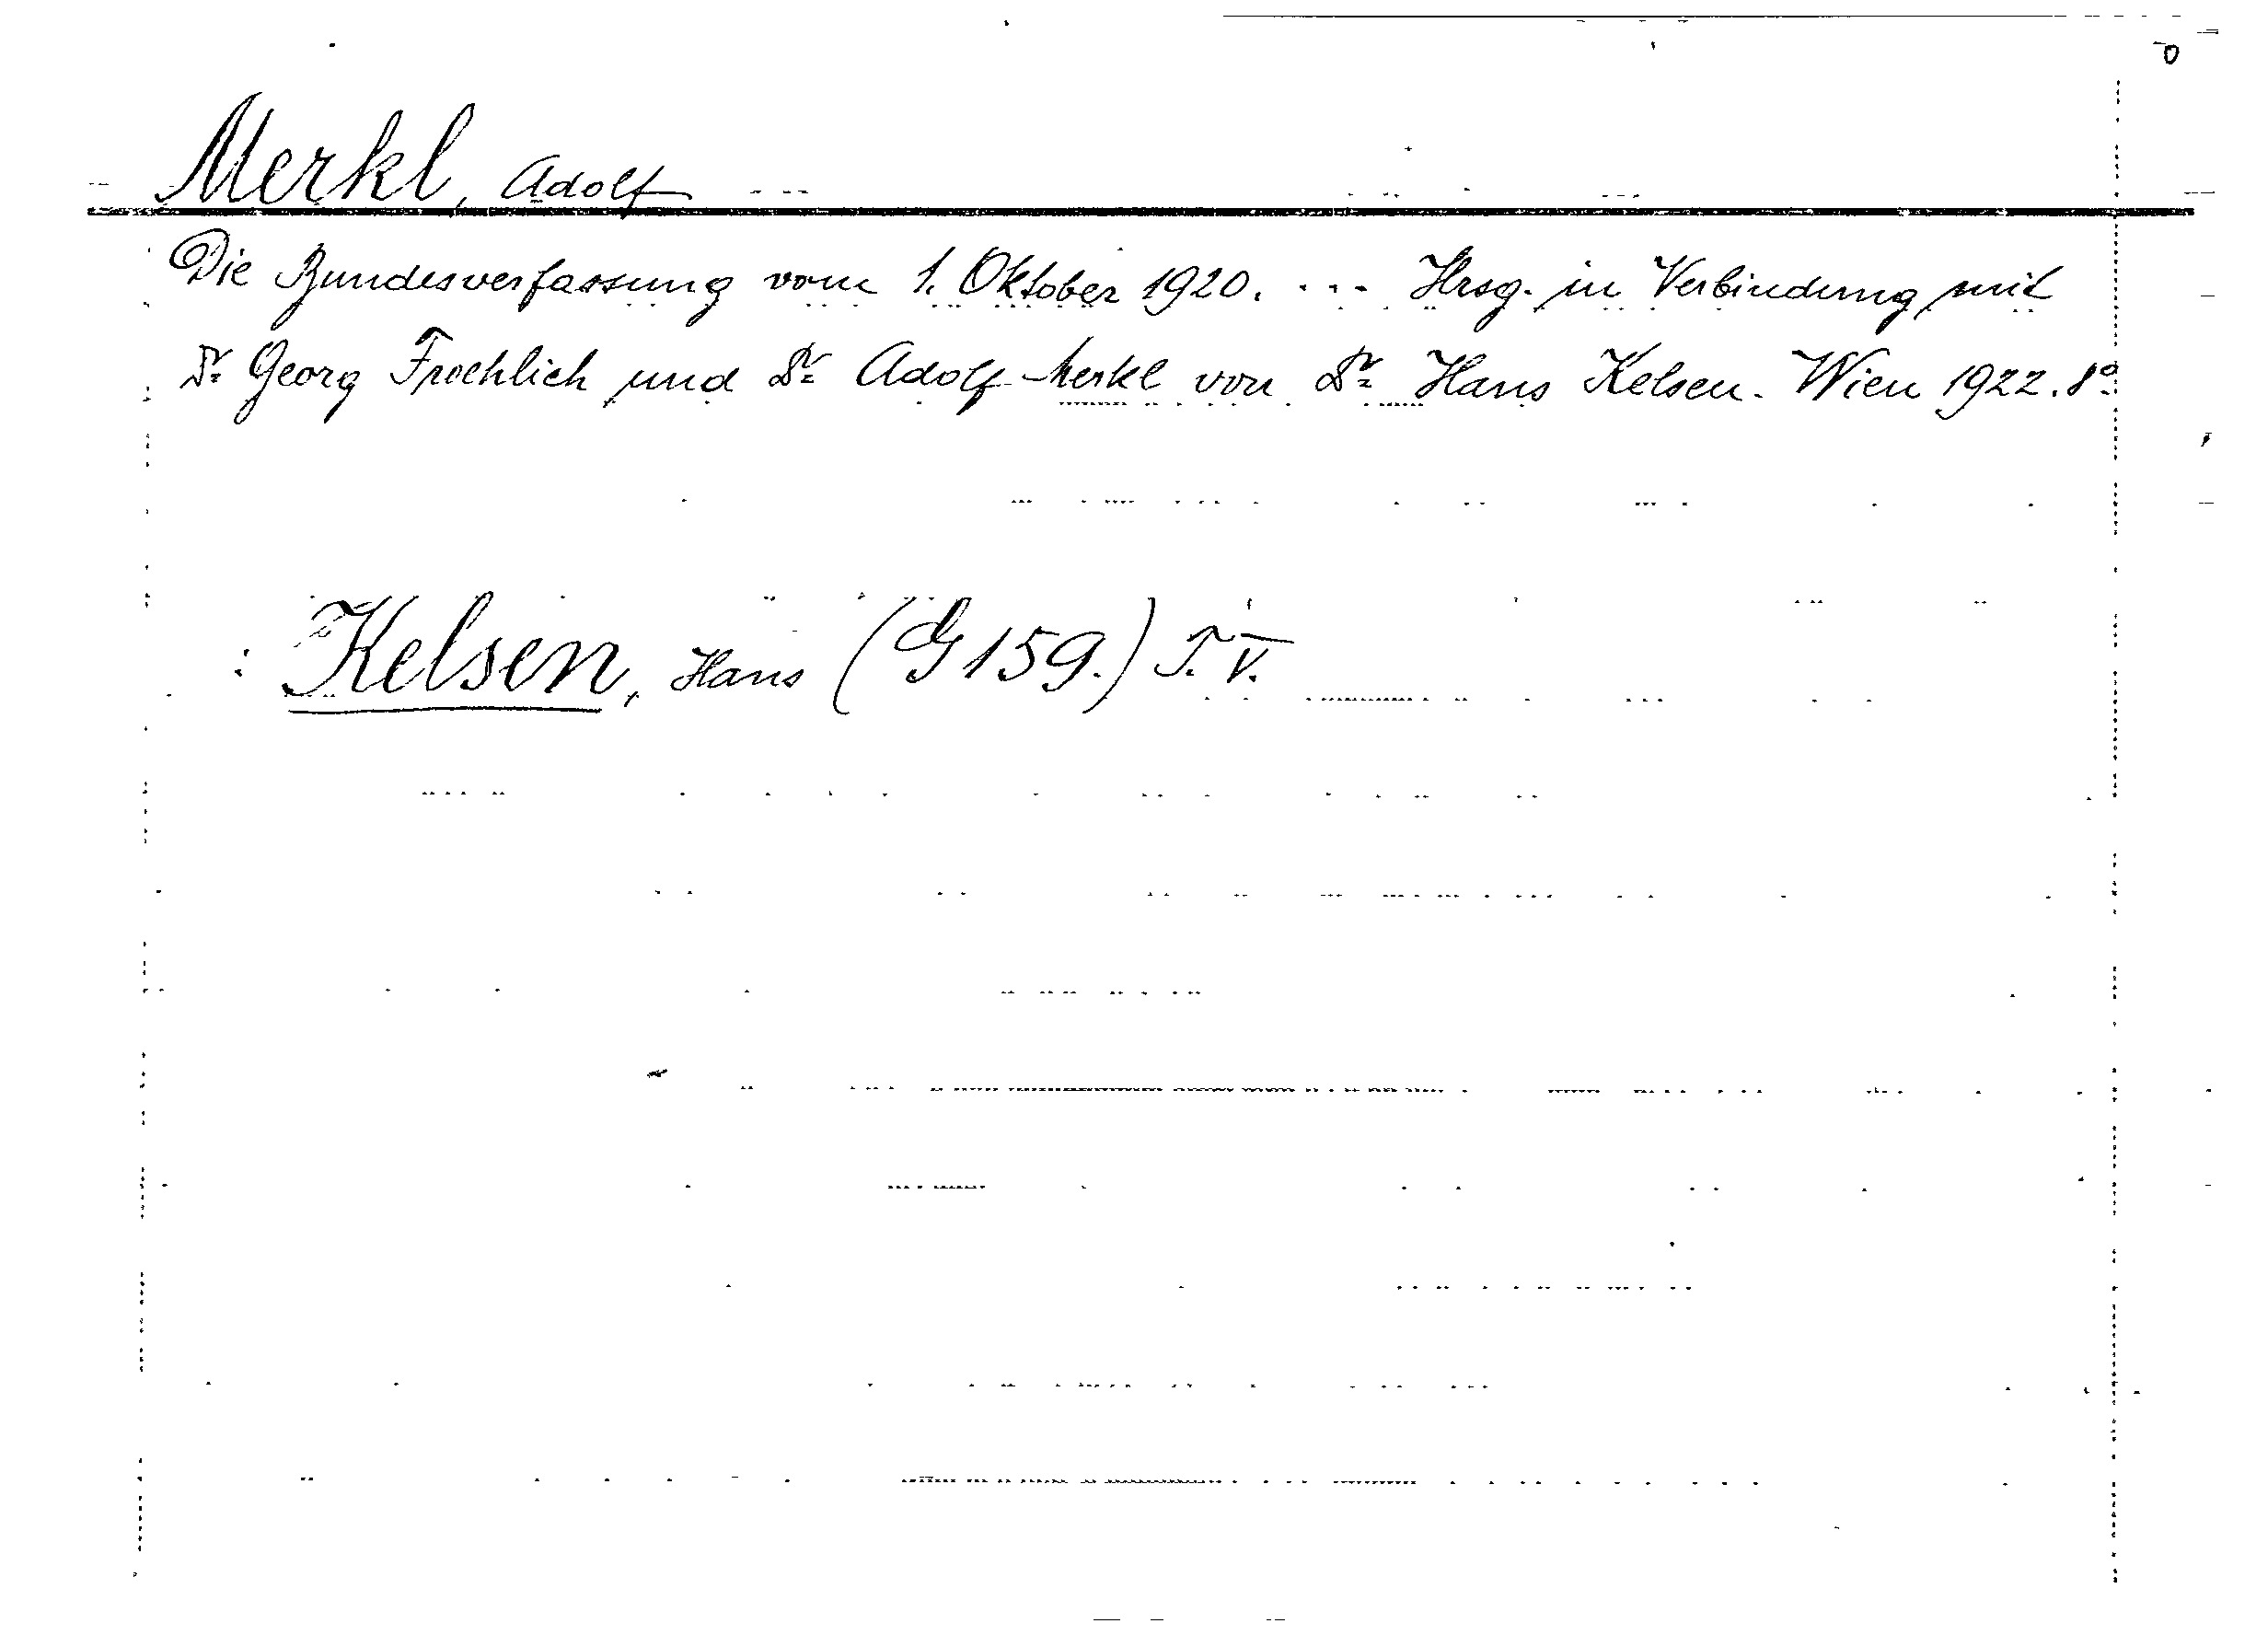 Merkl, Adolf
Die Bundesverfassung vom 1. Oktober 1920. ... Hrsg. in Verbindung mit
Dr. Georg Froehlich und Dr. Adolf Merkl von Dr. Hans Kelsen. Wien 1922. 8°
: Kelsen, Hans (G 159.) T. V.